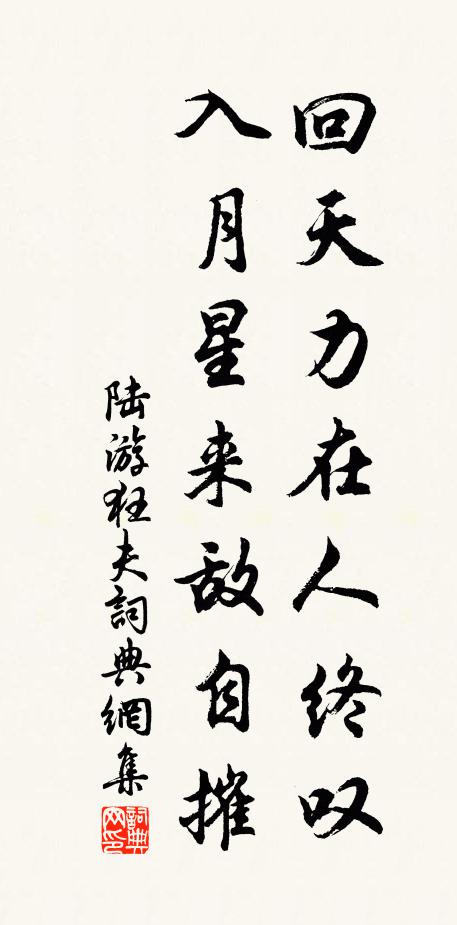 回天力在人终叹
入月星来敌自摧
陆游狂夫詞典網集
詞典网印